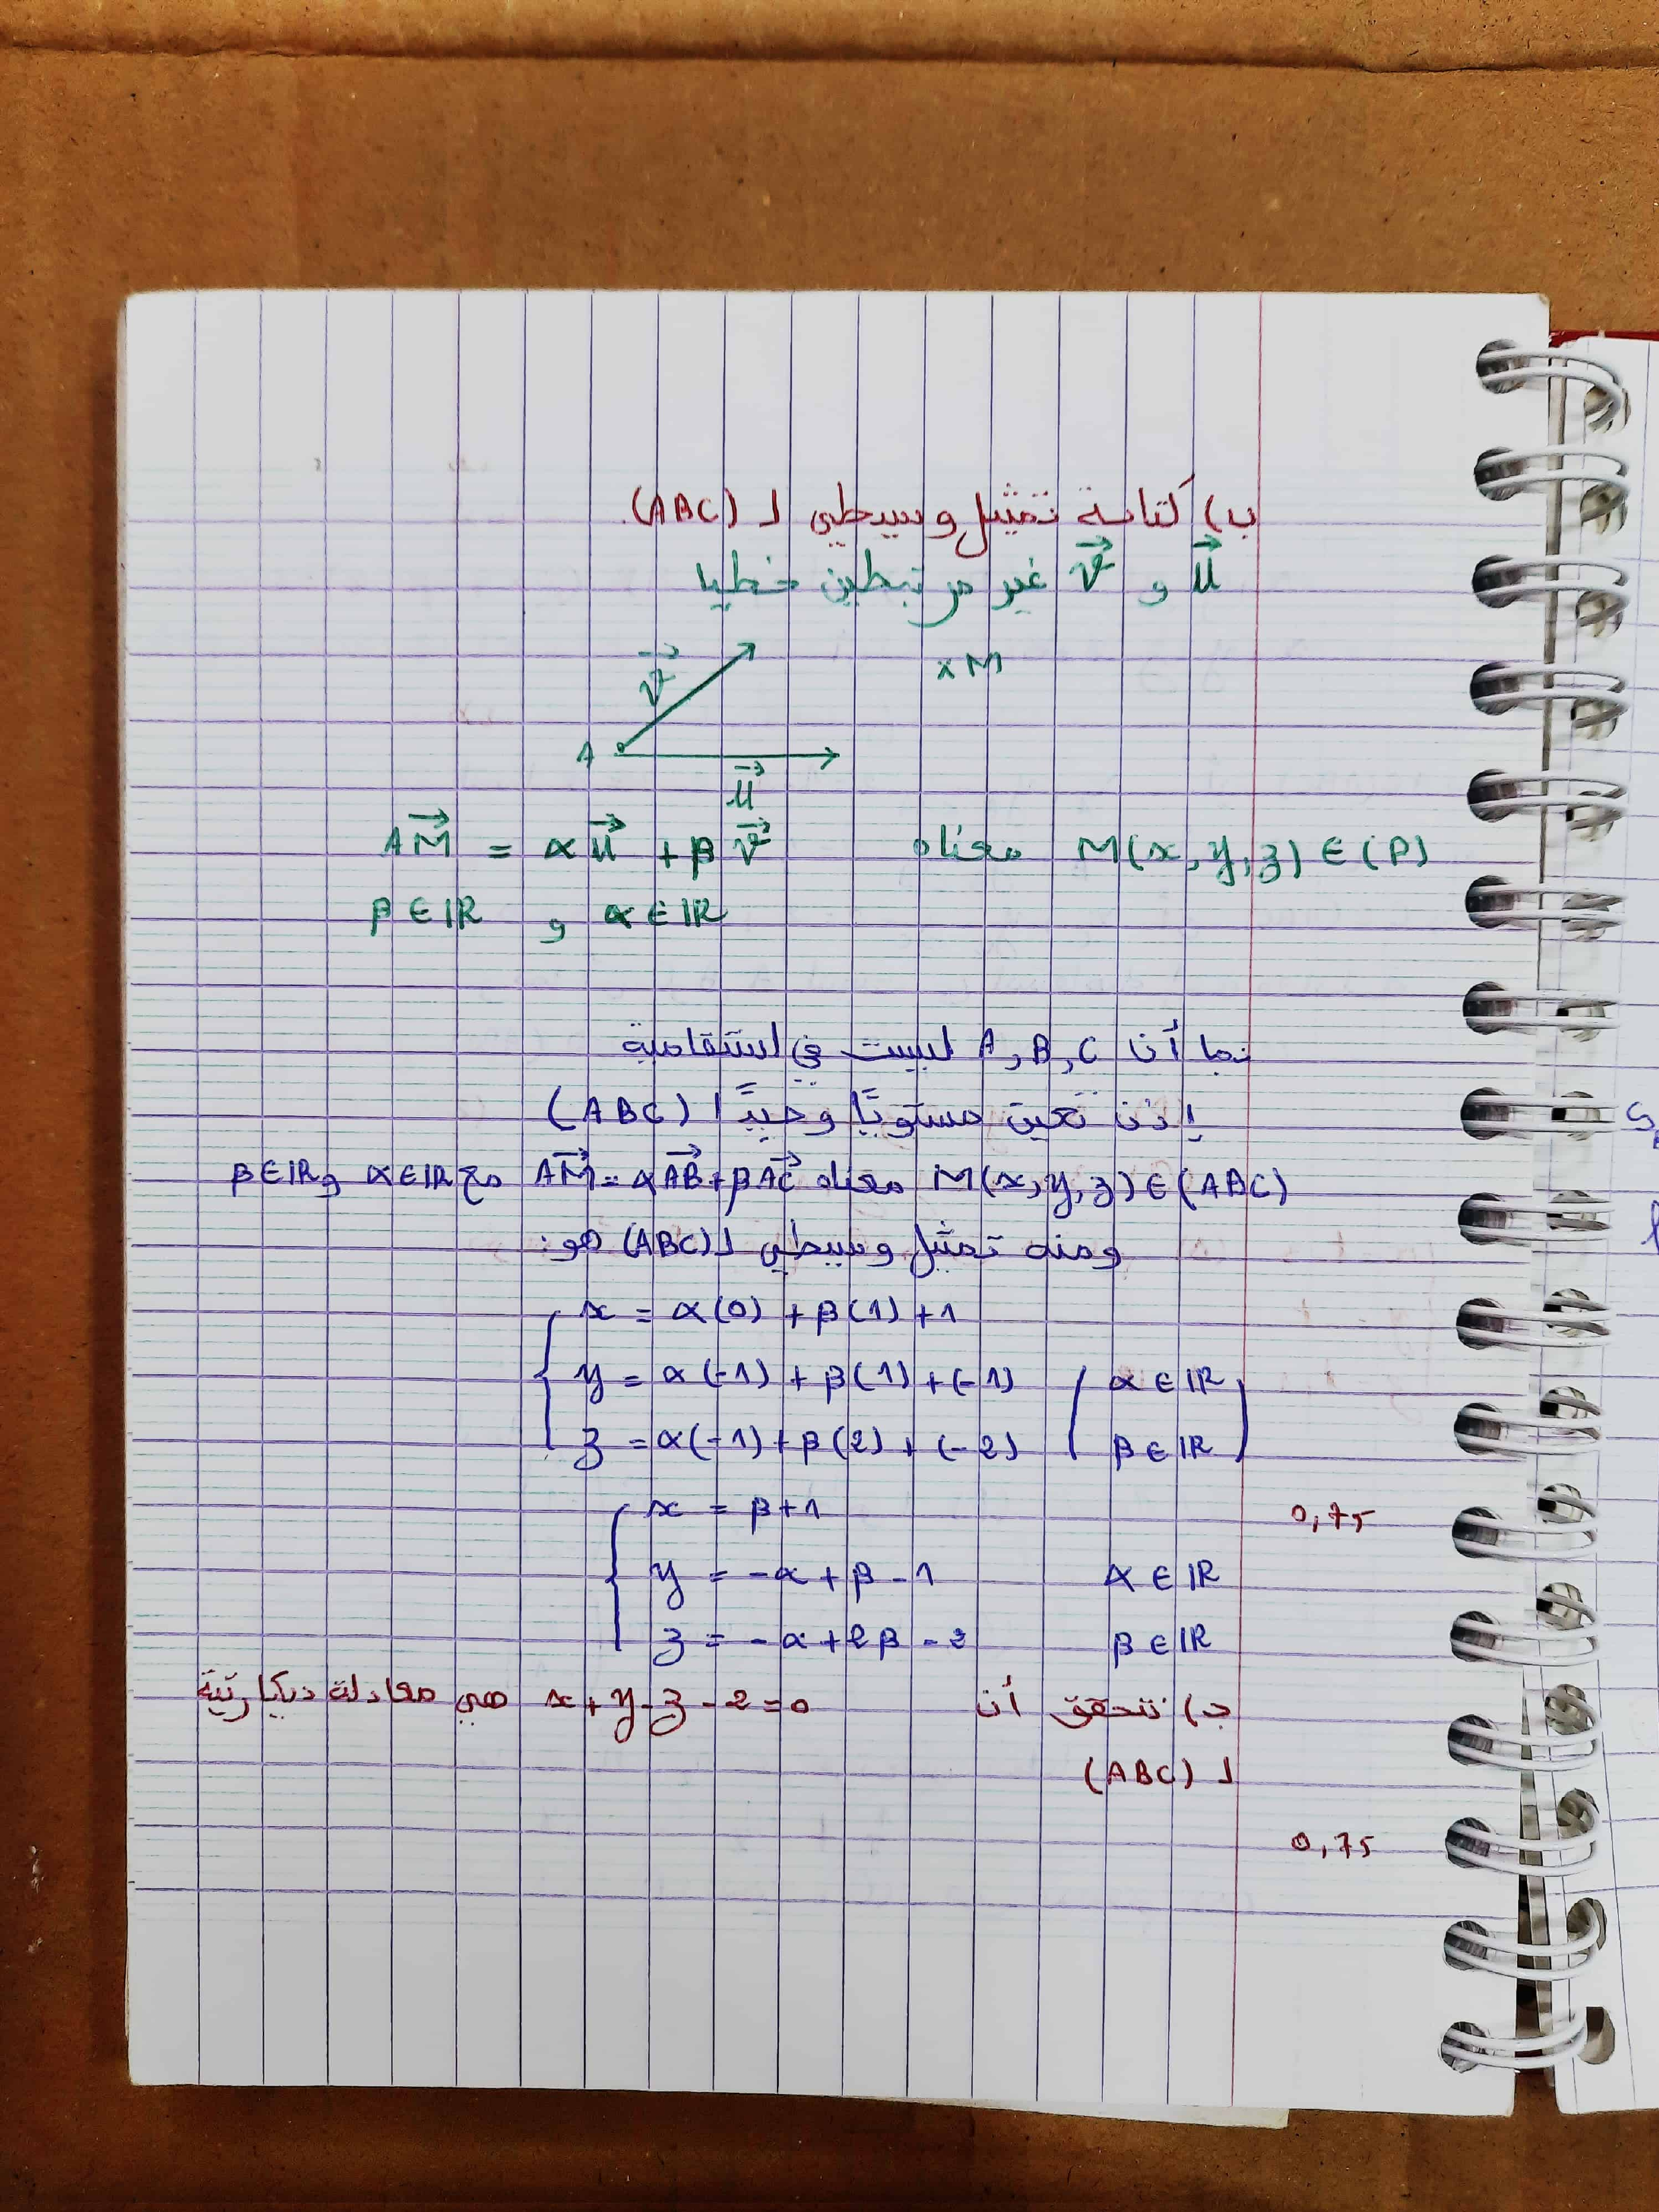 ب) كتابة تمثيل وسيطي لـ (ABC).
u⃗ و v⃗ غير مرتبطين خطيا
v⃗
x M
A
u⃗
M(x, y, z) ∈ (P) معناه AM⃗ = α u⃗ + β v⃗
α ∈ IR و β ∈ IR
بما أن A, B, C ليست في استقامية
إذن تعين مستويًا وحيدًا (ABC)
M(x, y, z) ∈ (ABC) معناه AM⃗ = α AB⃗ + β AC⃗ مع α ∈ IR و β ∈ IR
ومنه تمثيل وسيطي لـ (ABC) هو:
x = α(0) + β(1) + 1
y = α(-1) + β(1) + (-1) ( α ∈ IR
z = α(-1) + β(2) + (-2) β ∈ IR )
x = β + 1 0,75
y = -α + β - 1 α ∈ IR
z = -α + 2β - 2 β ∈ IR
ج) نتحقق أن x + y - z - 2 = 0 هي معادلة ديكارتية
لـ (ABC)
0,75